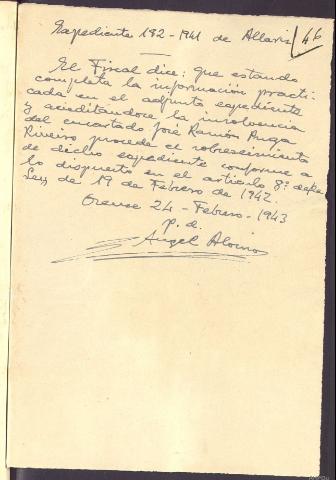 Expediente 182-1941 de Allariz
46
El Fiscal dice: que estando
completa la información practi-
cada en el adjunto expediente
y acreditándose la insolvencia
del encartado José Ramón Puga
Riveiro procede el sobreseimiento
de dicho expediente conforme a
lo dispuesto en el artículo 8º de la
Ley de 19 de Febrero de 1942.
Orense 24 - Febrero - 1943
p. d.
Angel Alonso